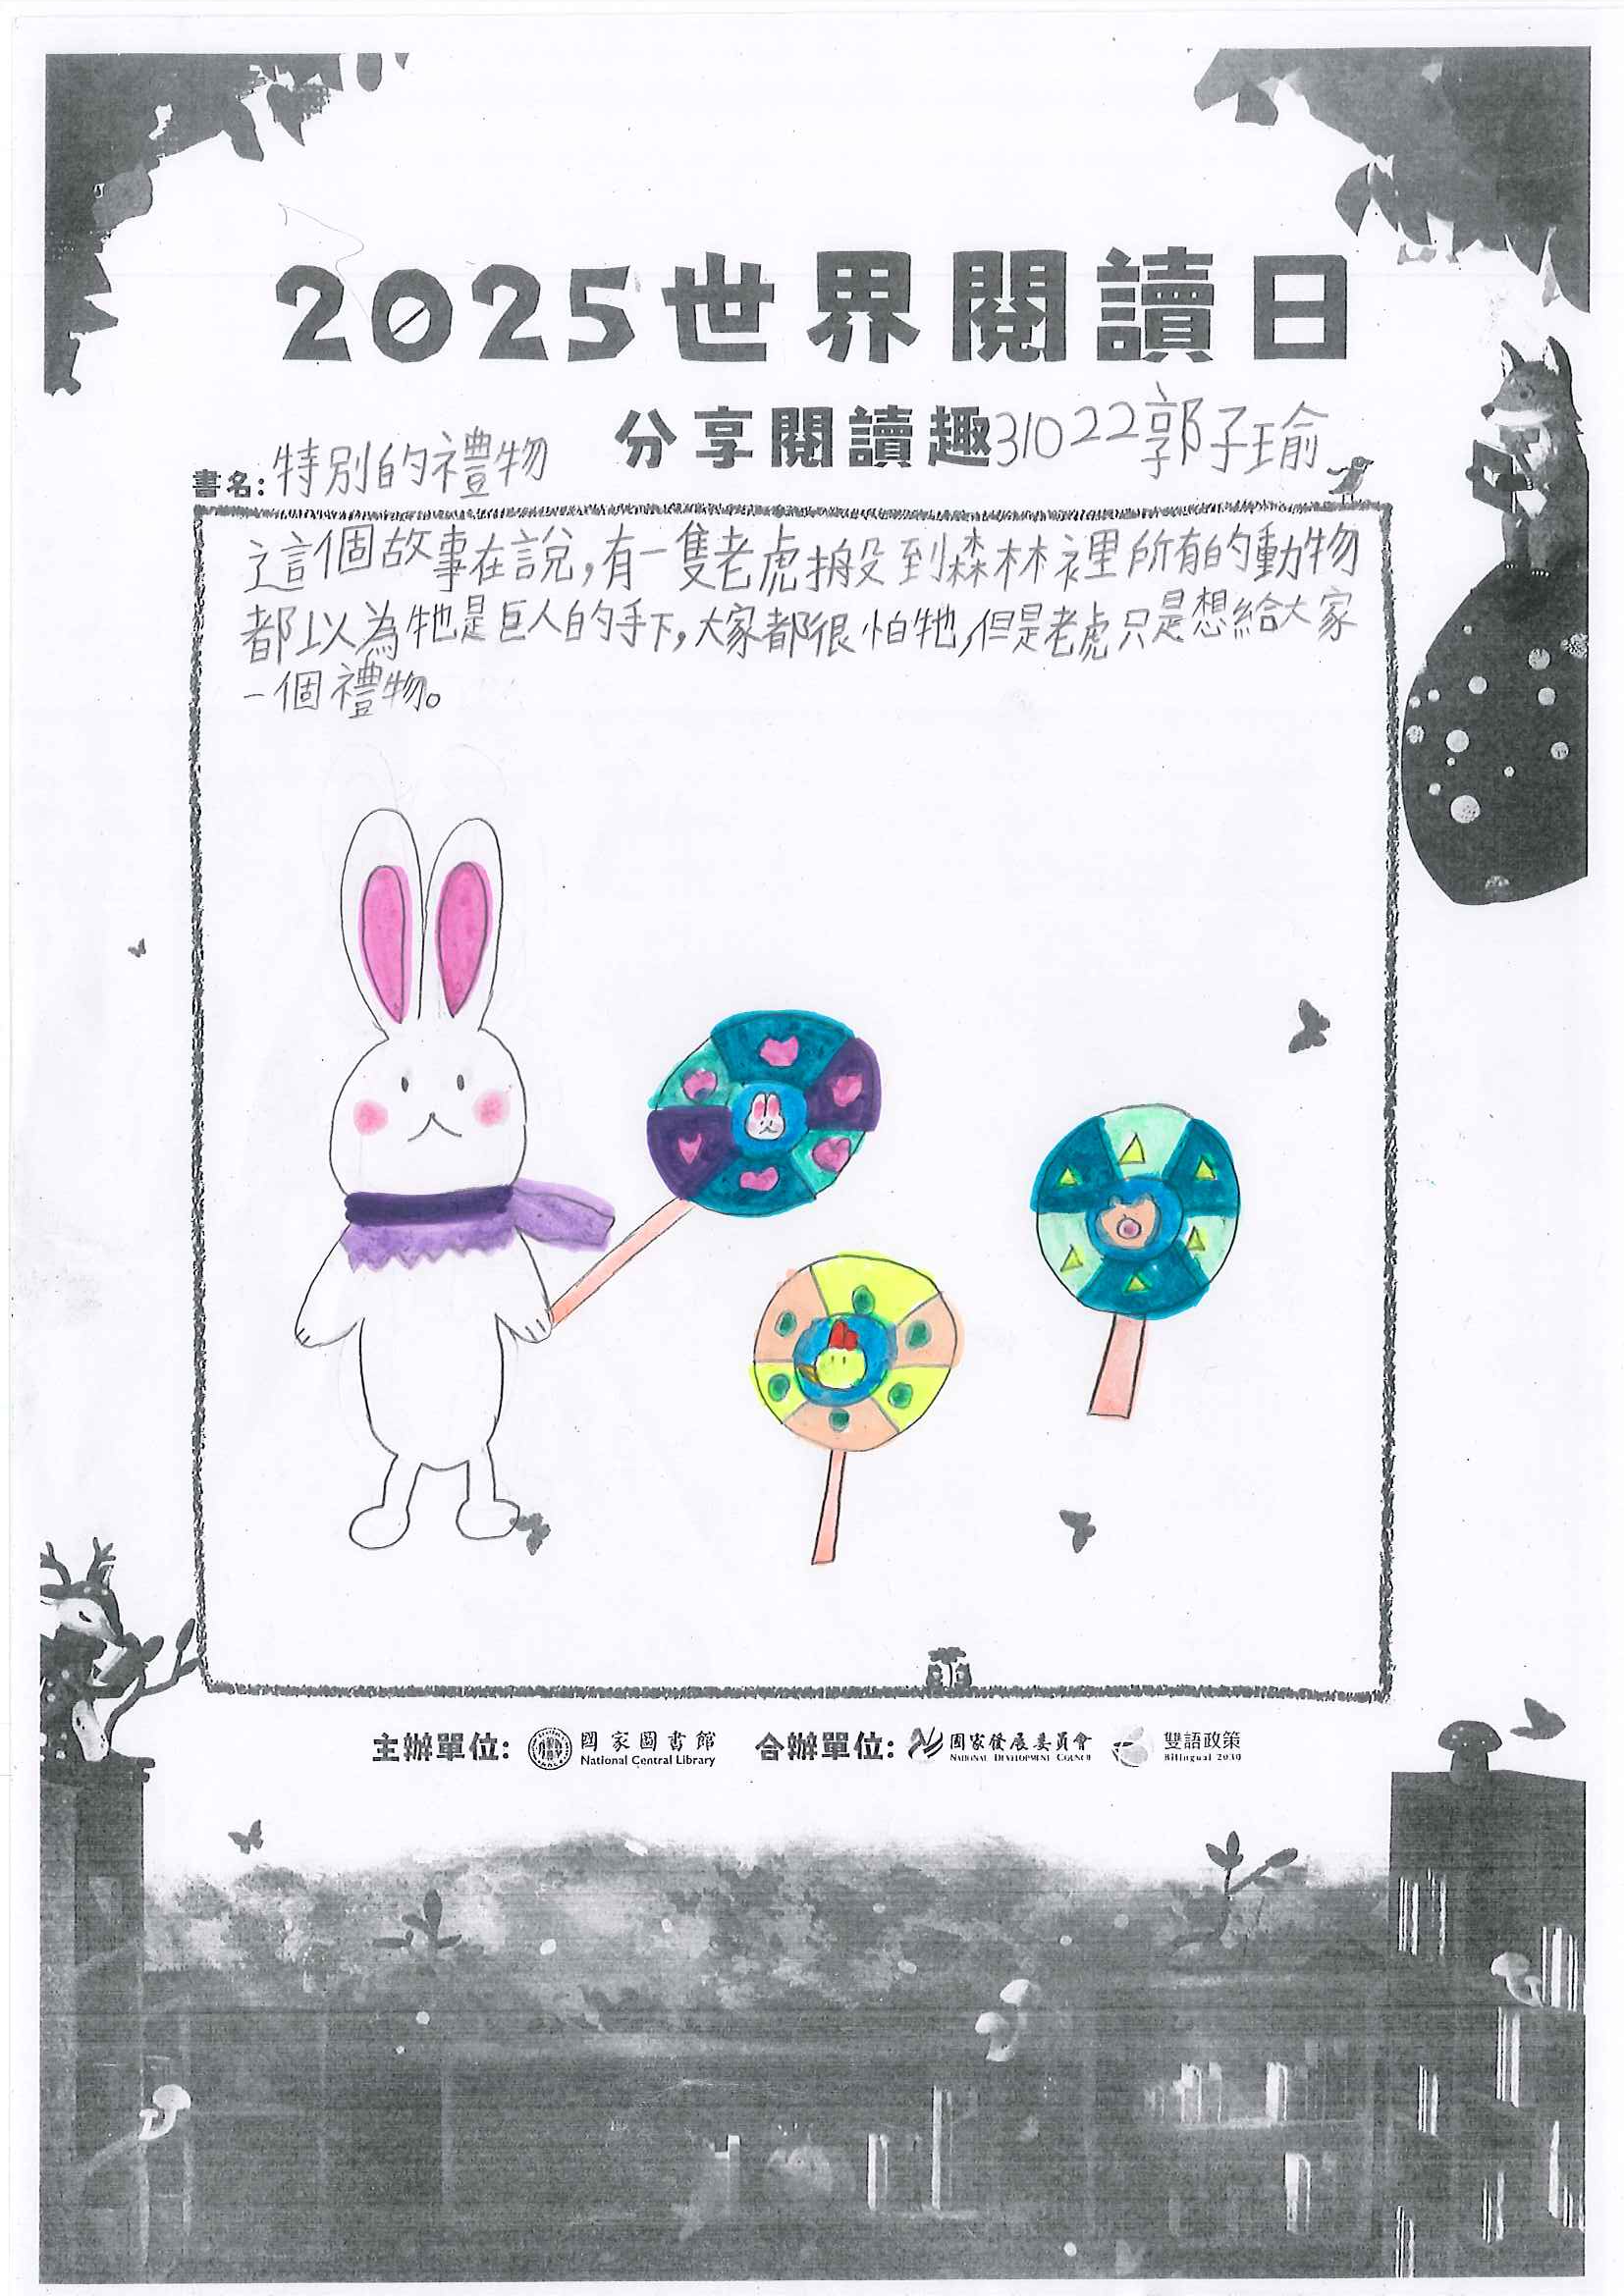 2025世界閱讀日
分享閱讀趣
31022郭子瑜
書名:特別的禮物
這個故事在說,有一隻老虎搬到森林裡所有的動物
都以為牠是巨人的手下,大家都很怕牠,但是老虎只是想給大家
一個禮物。
主辦單位: 國家圖書館 National Central Library 合辦單位: 國家發展委員會 NATIONAL DEVELOPMENT COUNCIL 雙語政策 Bilingual 2030